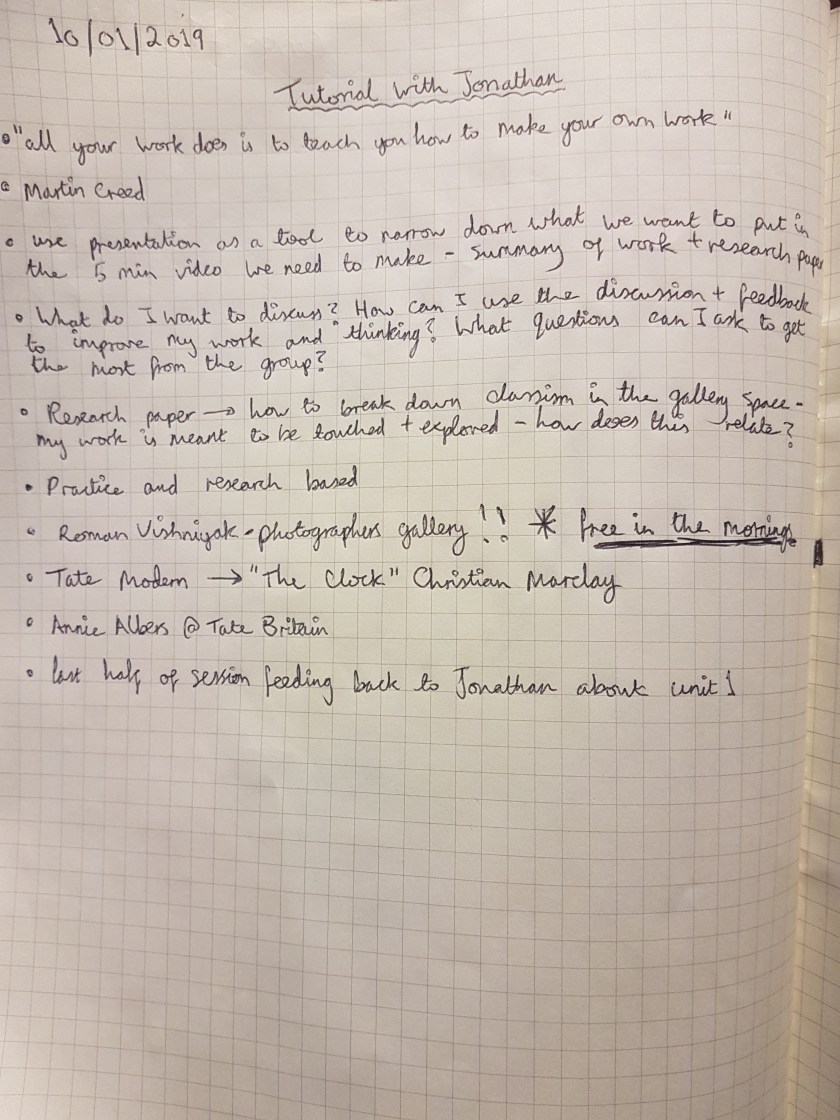 10/01/2019
Tutorial with Jonathan
• "all your work does is to teach you how to make your own work"
• Martin Creed
• use presentation as a tool to narrow down what we want to put in
the 5 min video we need to make - summary of work + research paper
• What do I want to discuss? How can I use the discussion + feedback
to improve my work and thinking? What questions can I ask to get
the most from the group?
• Research paper → how to break down classism in the gallery space -
my work is meant to be touched + explored - how does this relate?
• Practice and research based
• Roman Vishniyak - photographers gallery!! * free in the mornings
• Tate Modern → "The Clock" Christian Marclay
• Annie Albers @ Tate Britain
• last half of session feeding back to Jonathan about unit 1